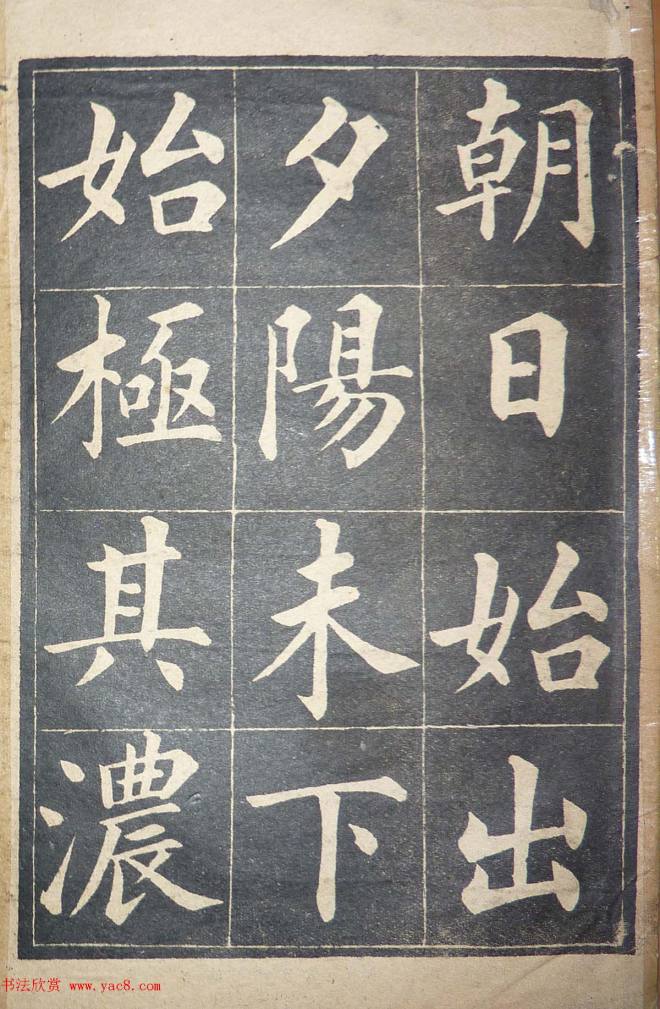 朝日始出
夕陽未下
始極其濃
书法欣赏 www.yac8.com